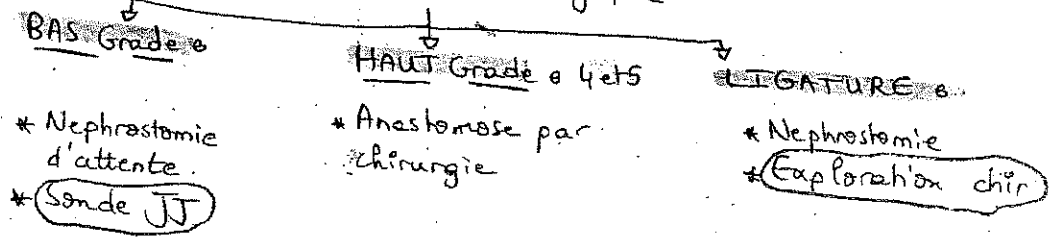 BAS Grade :
* Nephrostomie
d'attente.
* Sonde JJ
HAUT Grade : 4 et 5
* Anastomose par
chirurgie
LIGATURE :
* Nephrostomie
* Exploration chir